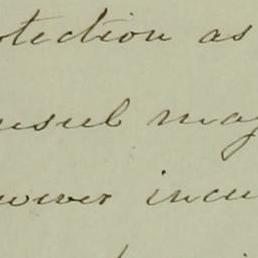 otection as
unsul may
wever incu